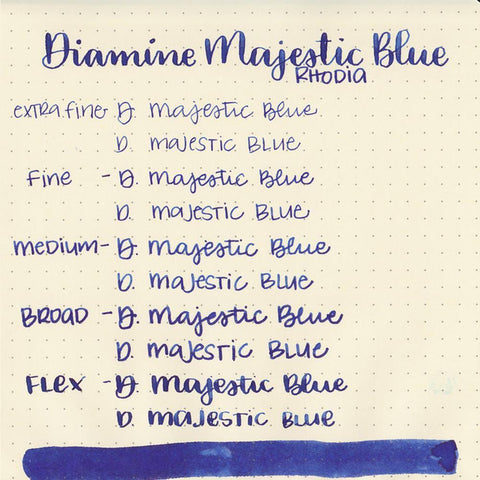 Diamine Majestic Blue
RHODIA
extra fine - D. Majestic Blue
D. MAJESTIC BLUE
Fine - D. Majestic Blue
D. MAJESTIC BLUE
MEDIUM - D. Majestic Blue
D. MAJESTIC BLUE
BROAD - D. Majestic Blue
D. MAJESTIC BLUE
FLEX - D. Majestic Blue
D. MAJESTIC BLUE